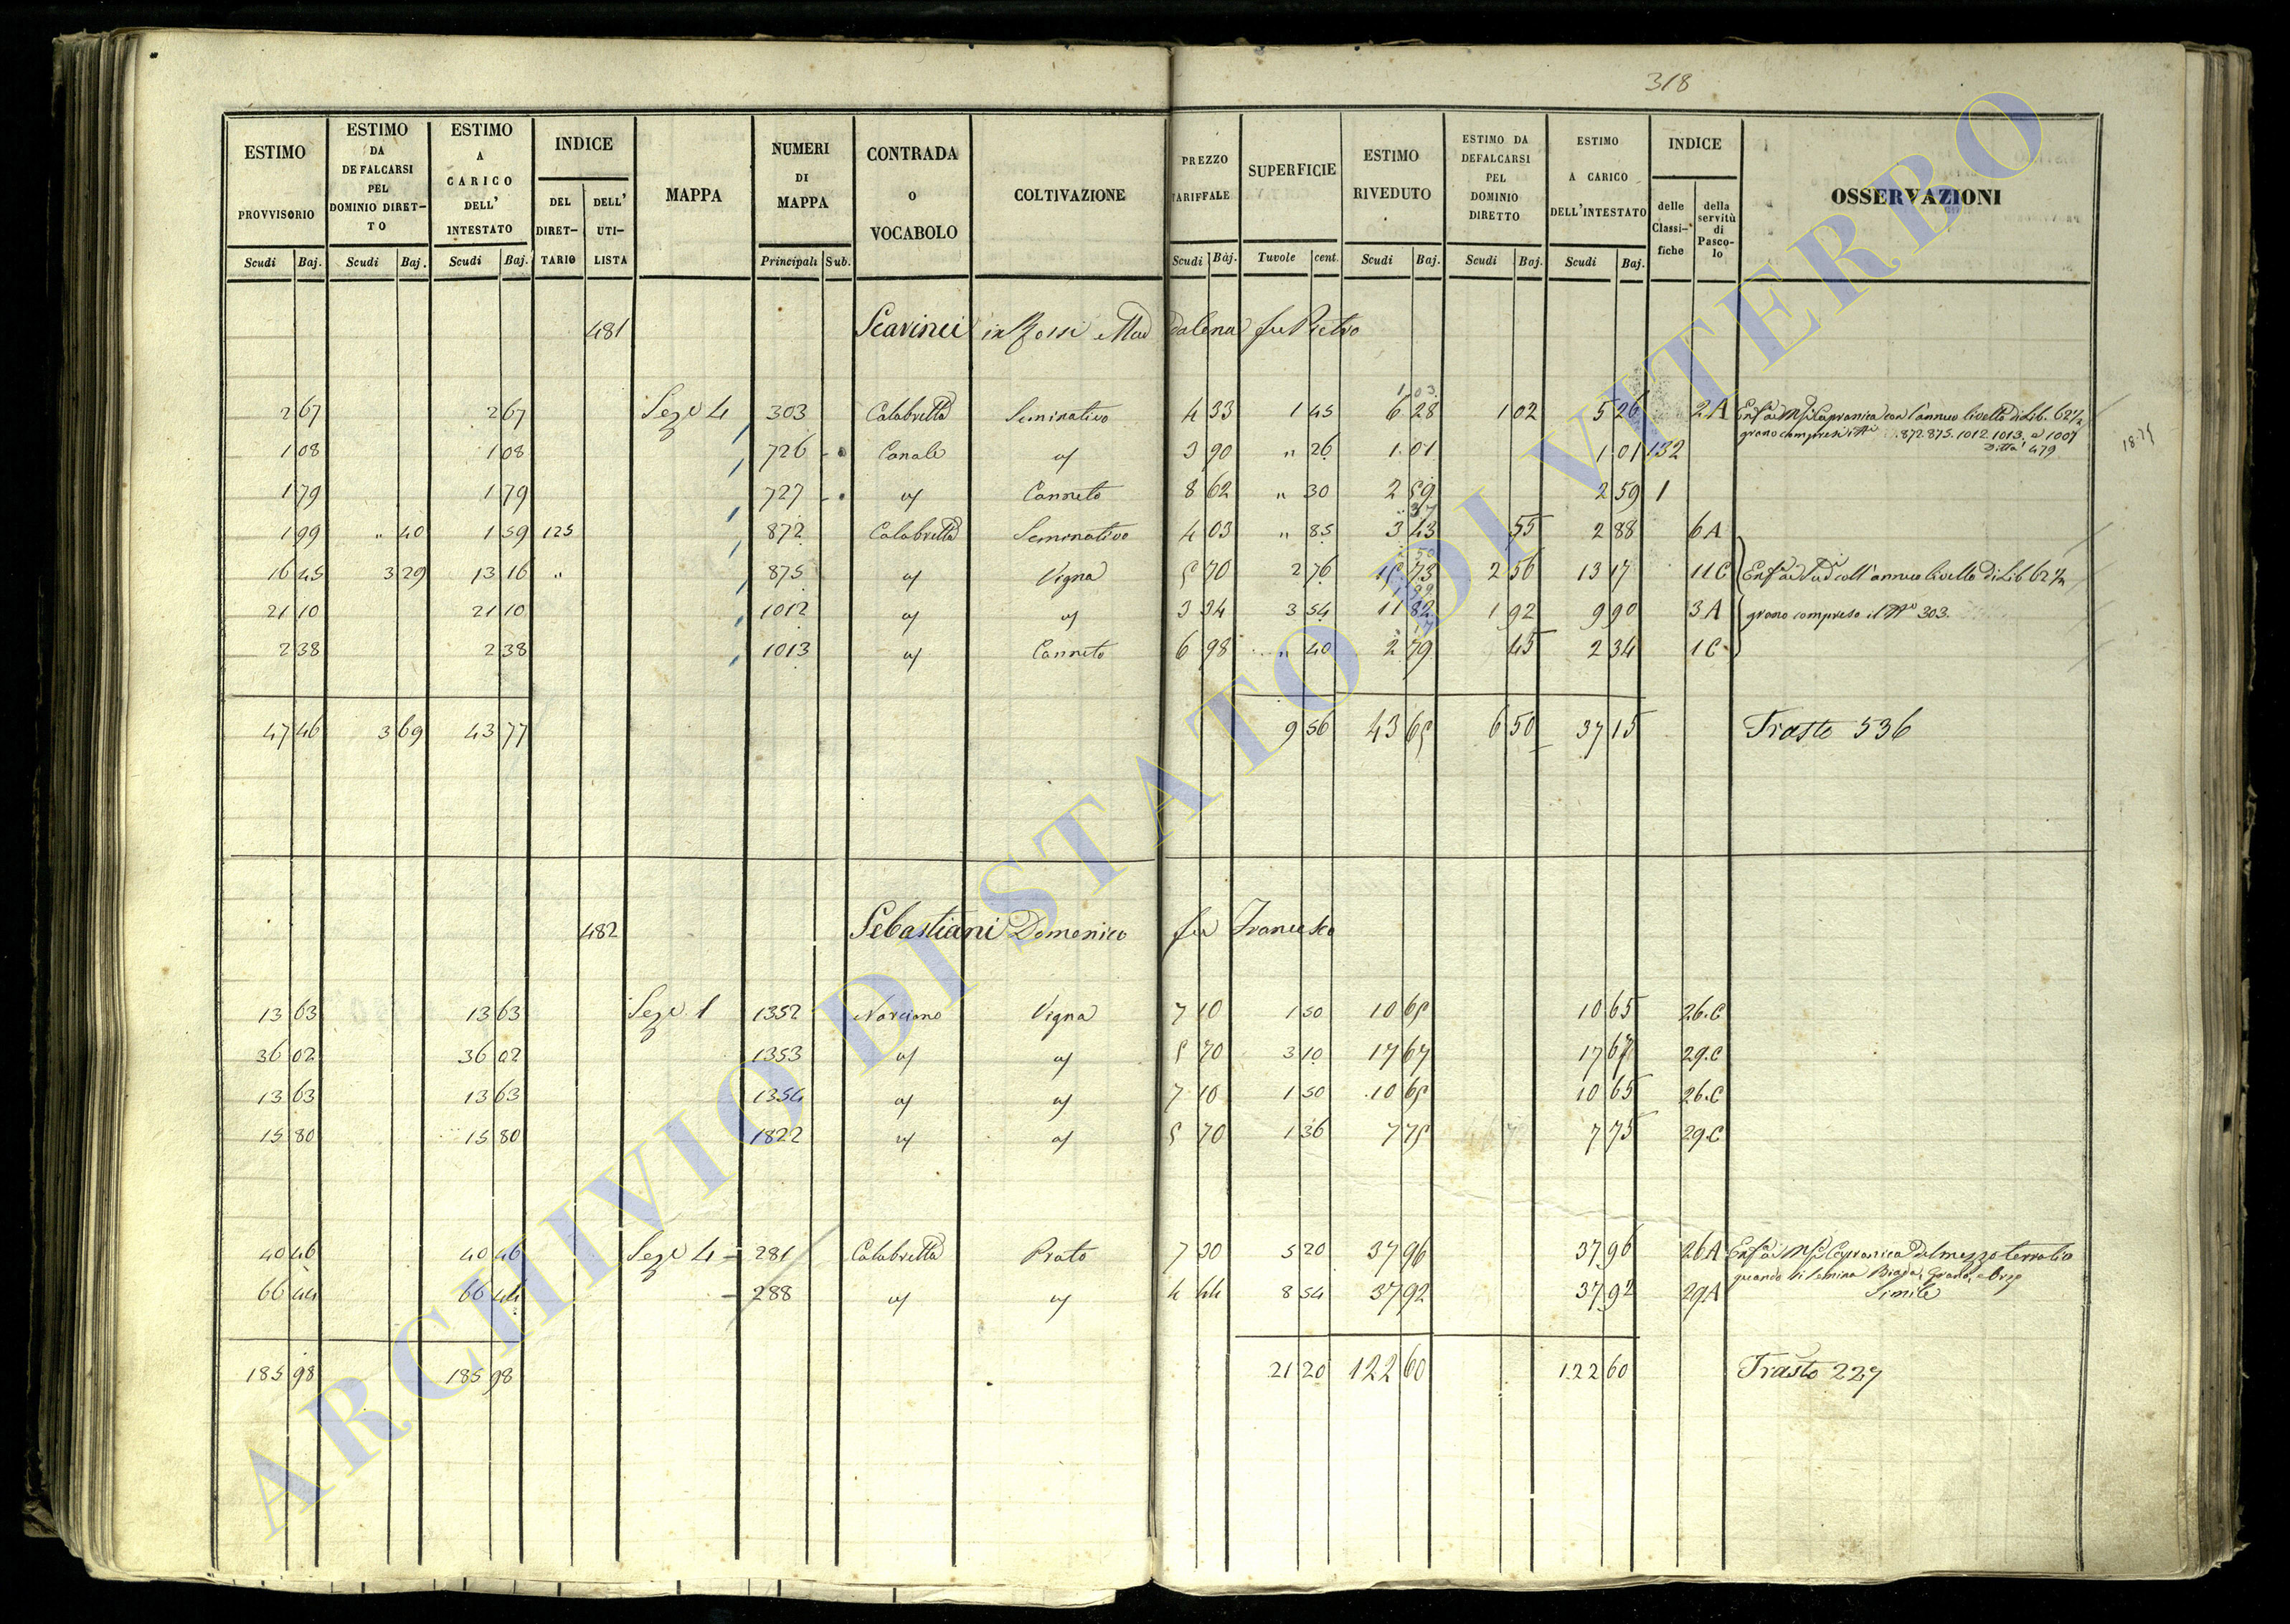 318
ESTIMO PROVVISORIO | ESTIMO DA DEFALCARSI PEL DOMINIO DIRET-TO | ESTIMO A CARICO DELL' INTESTATO | INDICE DEL DIRET-TARIO | DELL' UTI-LISTA | MAPPA | NUMERI DI MAPPA | CONTRADA O VOCABOLO | COLTIVAZIONE | PREZZO TARIFFALE | SUPERFICIE | ESTIMO RIVEDUTO | ESTIMO DA DEFALCARSI PEL DOMINIO DIRETTO | ESTIMO A CARICO DELL'INTESTATO | INDICE delle Classi-fiche | della servitù di Pasco-lo | OSSERVAZIONI
Scudi Baj. | Scudi Baj. | Scudi Baj. | Principali Sub. | Scudi Baj. | Tavole cent. | Scudi Baj. | Scudi Baj. | Scudi Baj.
481 Scarinci in Rossi Maddalena fu Pietro
2 67 | 2 67 | Seze 4 | 303 | Calabretta | Seminativo | 4 33 | 1 45 | 1 03 6 28 | 1 02 | 5 26 | 2A | Capranica con l'annuo livello di Lib. 62½
grano compresi 872. 875. 1012. 1013. e 1007
Ditta 479
18.75
1 08 | 1 08 | 726 | Canale | " | 3 90 | " 26 | 1 01 | 1 01 | 132
1 79 | 1 79 | 727 | " | Canneto | 8 62 | " 30 | 2 59 | 2 59 | 1
1 99 | " 40 | 1 59 | 125 | 872 | Calabretta | Seminativo | 4 03 | " 85 | 3 43 | 55 | 2 88 | 6A
16 45 | 3 29 | 13 16 | " | 875 | " | Vigna | 5 70 | 2 76 | 15 73 | 2 56 | 13 17 | 11C | coll'annuo livello di Lib 62½
21 10 | 21 10 | 1012 | " | " | 3 34 | 3 54 | 11 82 | 1 92 | 9 90 | 3A | grano compreso il No 303.
2 38 | 2 38 | 1013 | " | Canneto | 6 98 | " 40 | 2 79 | 45 | 2 34 | 1C
47 46 | 3 69 | 43 77 | 9 56 | 43 65 | 6 50 | 37 15 | Trasto 536
482 Sebastiani Domenico fu Francesco
13 63 | 13 63 | Seze 1 | 1352 | Narciano | Vigna | 7 10 | 1 50 | 10 65 | 10 65 | 26.C
36 02 | 36 02 | 1353 | " | " | 5 70 | 3 10 | 17 67 | 17 67 | 29.C
13 63 | 13 63 | 1354 | " | " | 7 10 | 1 50 | 10 65 | 10 65 | 26.C
15 80 | 15 80 | 1822 | " | " | 5 70 | 1 36 | 7 75 | 7 75 | 29.C
40 46 | 40 46 | Seze 4 | 281 | Calabretta | Prato | 7 30 | 5 20 | 37 96 | 37 96 | 26A | Capranica del mezzo terratico
quando si semina Biada, Grano,
66 44 | 66 44 | 288 | " | " | 4 44 | 8 54 | 37 92 | 37 92 | 29A | Simile
185 98 | 185 98 | 21 20 | 122 60 | 122 60 | Trasto 227
ARCHIVIO DI STATO DI VITERBO